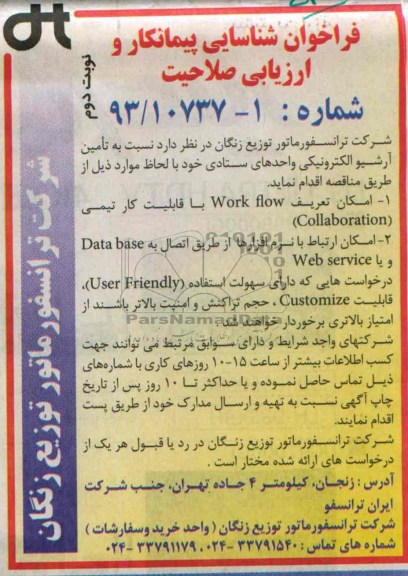 فراخوان شناسایی پیمانکار و
ارزیابی صلاحیت
نوبت دوم
شماره : ۱- ۹۳/۱۰۷۳۷
شرکت ترانسفورماتور توزیع زنگان در نظر دارد نسبت به تأمین
آرشیو الکترونیکی واحدهای ستادی خود با لحاظ موارد ذیل از
طریق مناقصه اقدام نماید.
۱- امکان تعریف Work flow با قابلیت کار تیمی
(Collaboration)
۲- امکان ارتباط با نرم افزارها از طریق اتصال به Data base
و یا Web service
درخواست هایی که دارای سهولت استفاده (User Friendly)،
قابلیت Customize ، حجم تراکنش و امنیت بالاتر باشند از
امتیاز بالاتری برخوردار خواهند شد.
ParsNamadData
شرکتهای واجد شرایط و دارای سوابق مرتبط می توانند جهت
کسب اطلاعات بیشتر از ساعت ۱۵-۱۰ روزهای کاری با شماره‌های
ذیل تماس حاصل نموده و یا حداکثر تا ۱۰ روز پس از تاریخ
چاپ آگهی نسبت به تهیه و ارسال مدارک خود از طریق پست
اقدام نمایند.
شرکت ترانسفورماتور توزیع زنگان در رد یا قبول هر یک از
درخواست های ارائه شده مختار است .
آدرس : زنجان، کیلومتر ۴ جاده تهران، جنب شرکت
ایران ترانسفو
شرکت ترانسفورماتور توزیع زنگان ( واحد خرید وسفارشات )
شماره های تماس : ۳۳۷۹۱۵۴۰-۰۲۴ ، ۳۳۷۹۱۱۷۹-۰۲۴
شرکت ترانسفورماتور توزیع زنگان